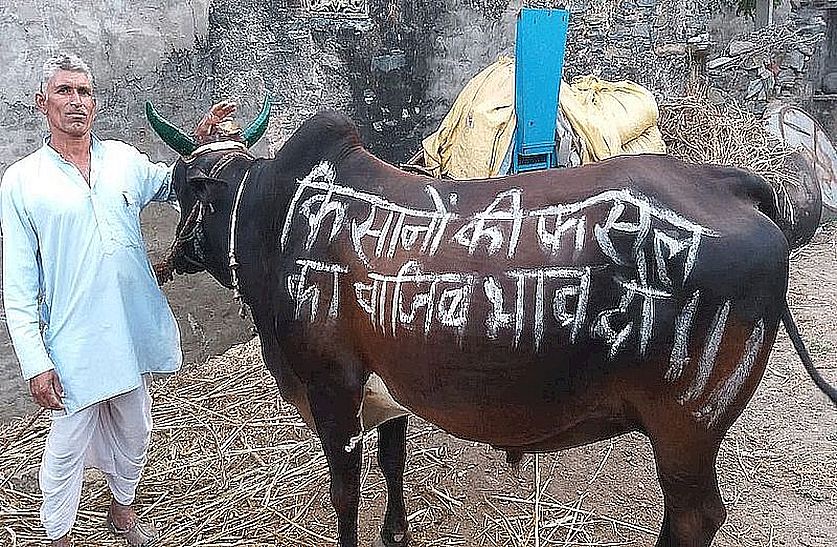 किसानों की फसल
का वाजिब भाव दो।।।